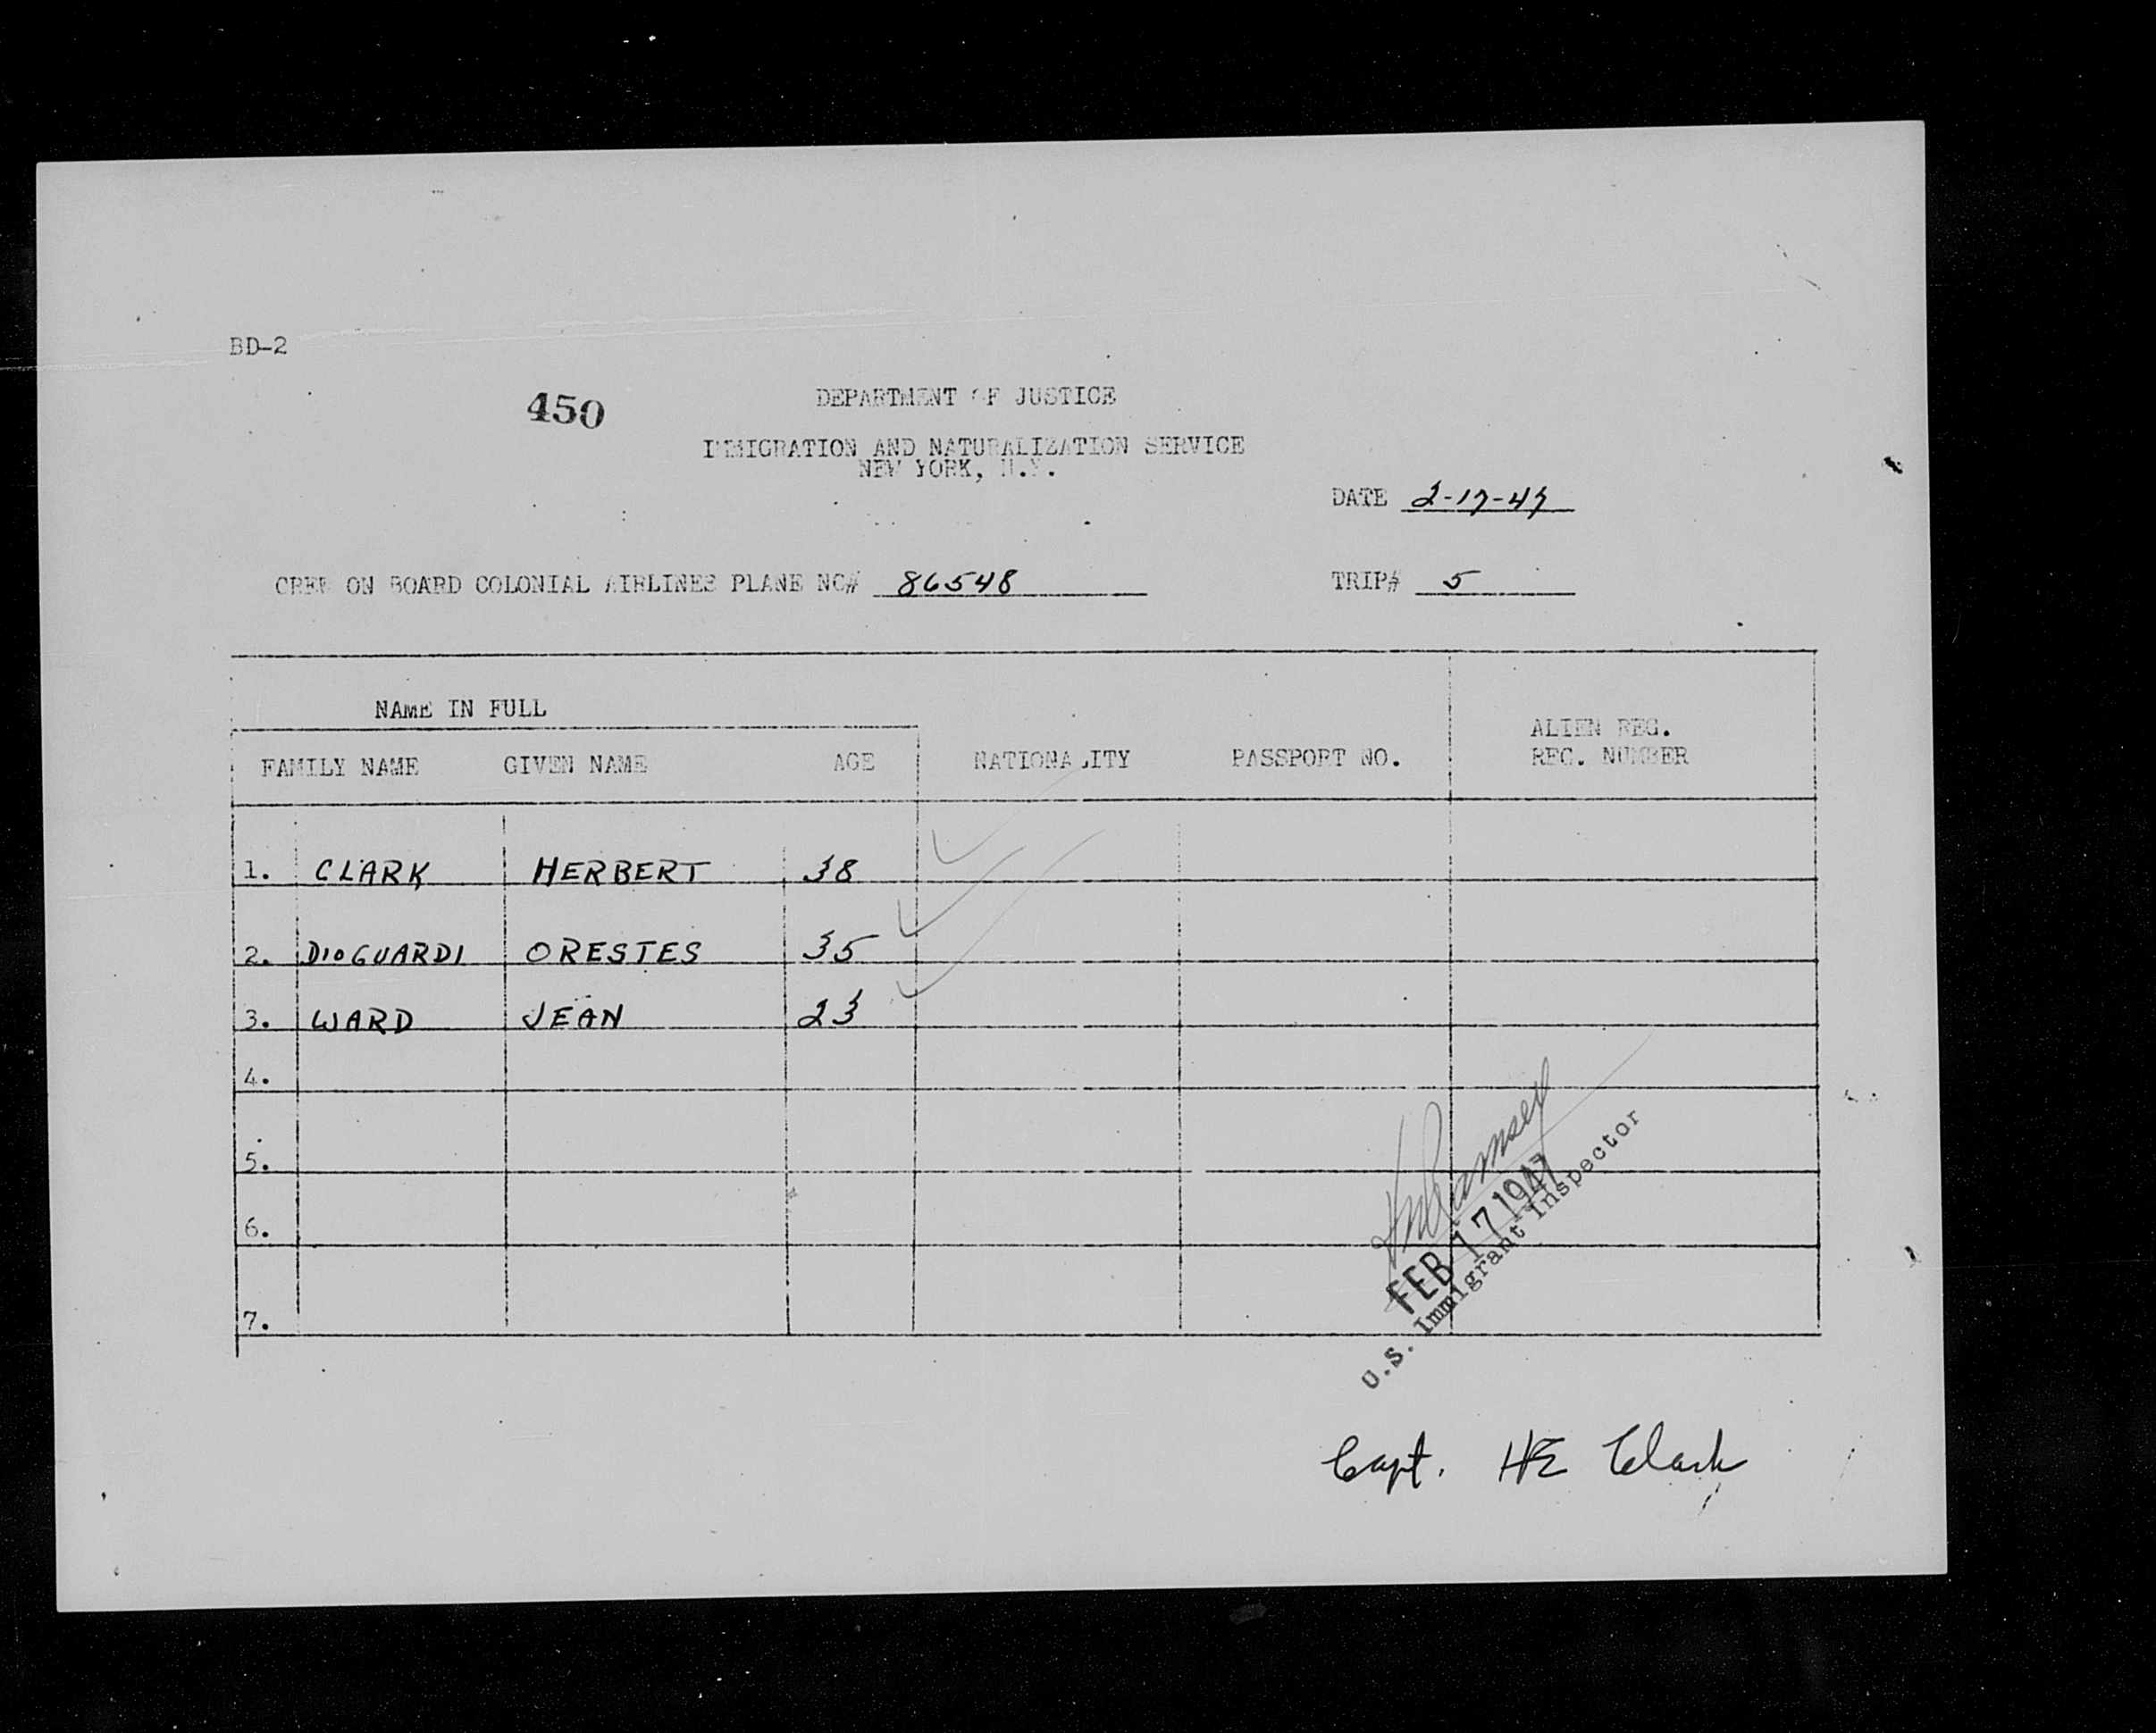 BD-2
450
DEPARTMENT OF JUSTICE
IMMIGRATION AND NATURALIZATION SERVICE
NEW YORK, N.Y.
DATE 2-17-47
CREW ON BOARD COLONIAL AIRLINES PLANE NC# 86548 TRIP# 5
NAME IN FULL
FAMILY NAME GIVEN NAME AGE NATIONALITY PASSPORT NO. ALIEN REG. REC. NUMBER
1. CLARK HERBERT 38
2. DIOGUARDI ORESTES 35
3. WARD JEAN 23
4.
5.
6.
7.
Ramsey
FEB 17 1947
U.S. Immigrant Inspector
Capt. HE Clark